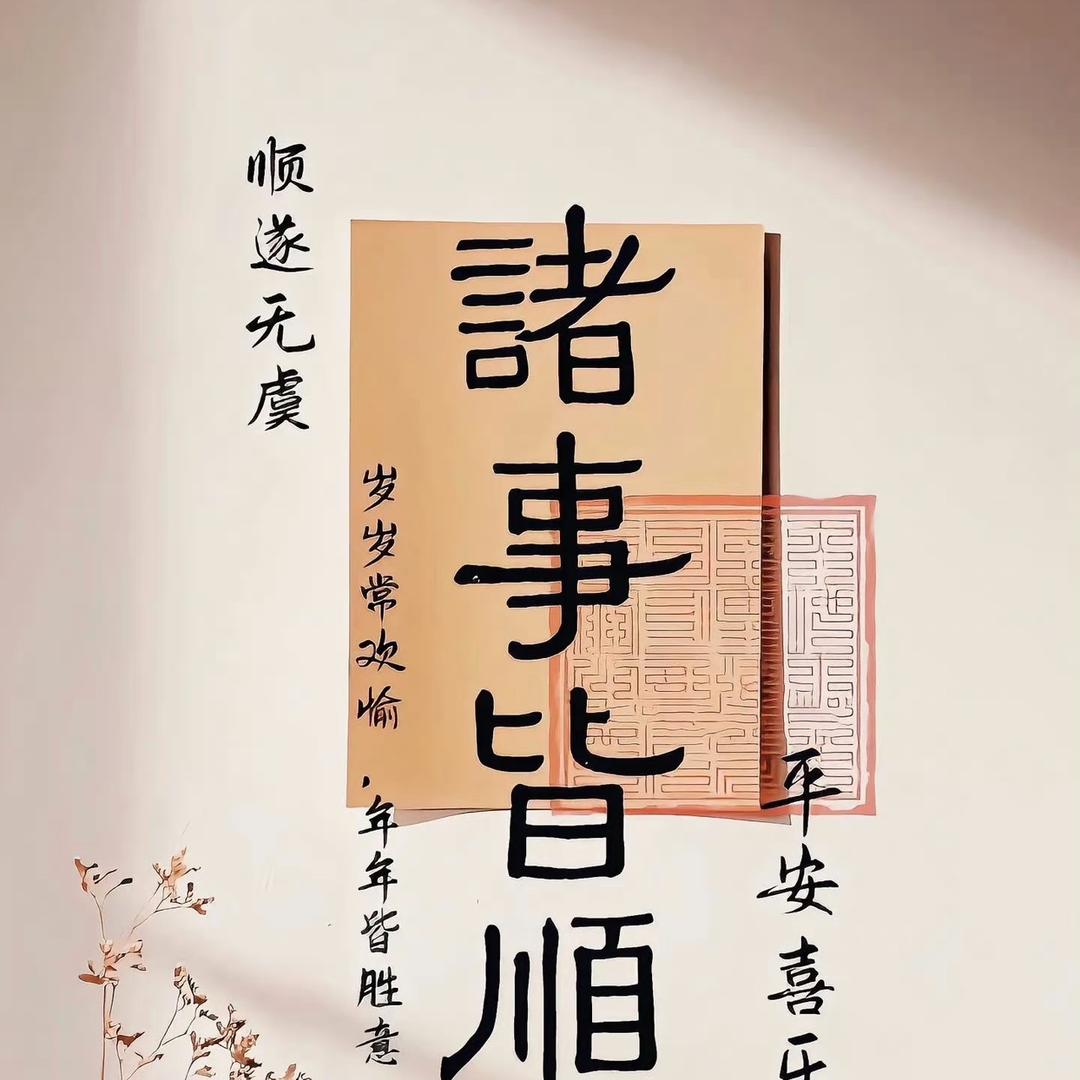 諸事皆順
顺遂无虞
岁岁常欢愉，年年皆胜意
平安喜乐